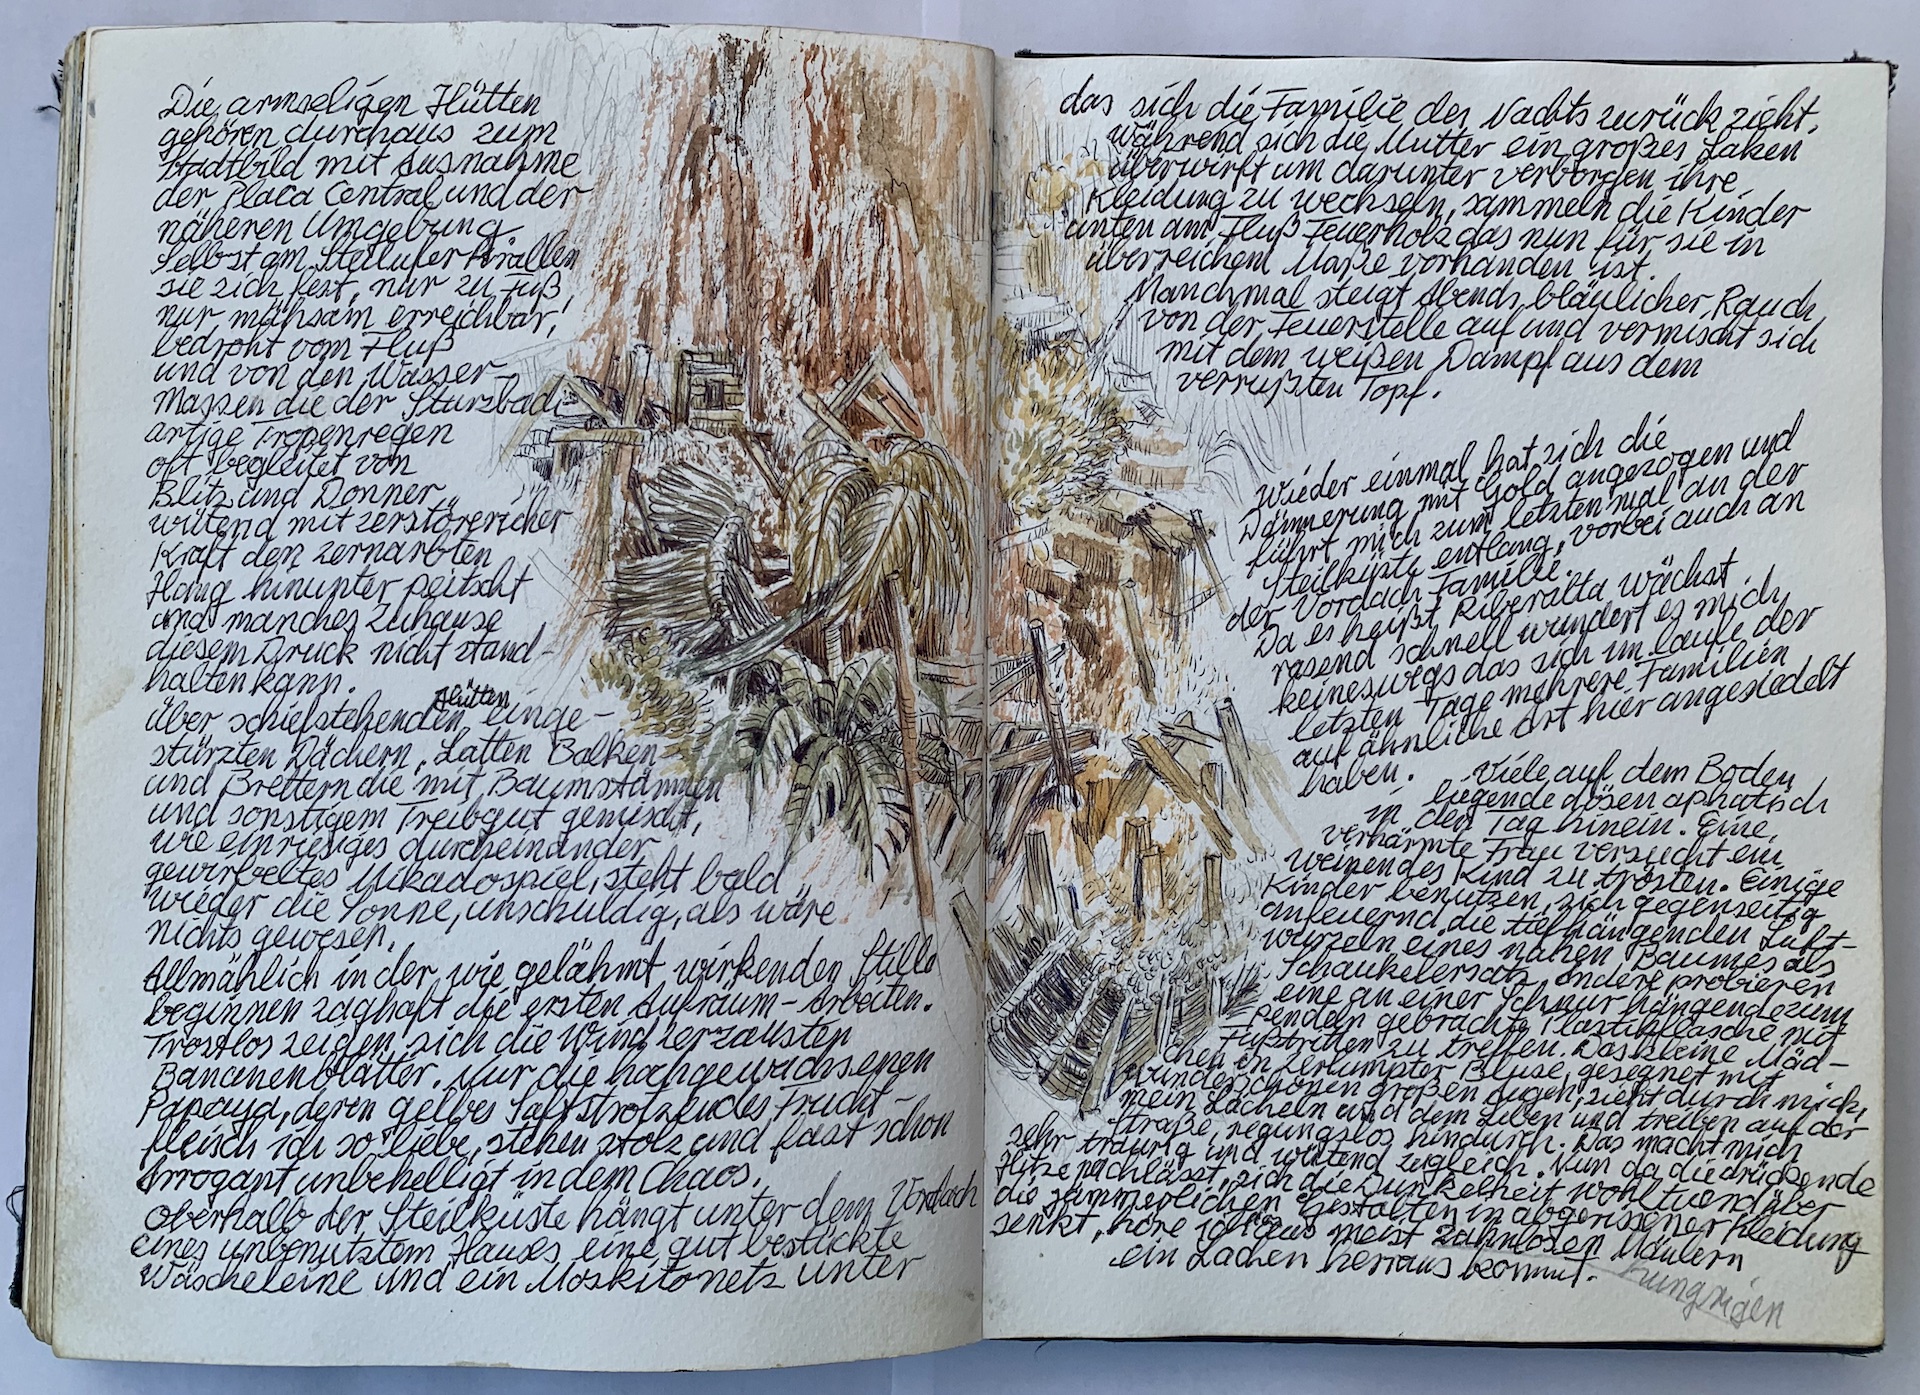 Die armseligen Hütten
gehören durchaus zum
Stadtbild mit Ausnahme
der Placa Central und der
näheren Umgebung
Selbst am Steilufer krallen
sie sich fest, nur zu Fuß,
nur mühsam erreichbar,
bedroht vom Fluß
und von den Wasser
Massen die der Sturzbach
artige Tropenregen
oft begleitet von
Blitz und Donner
wütend mit zerstörericher
Kraft den zernarbten
Hang hinunter peitscht
und manches Zuhause
diesem Druck nicht stand-
halten kann.
Hütten
über schiefstehenden einge-
stürzten Dächern, Latten Balken
und Brettern die mit Baumstämmen
und sonstigem Treibgut gemischt,
wie ein riesiges durcheinander
gewirbeltes Mikadospiel, steht bald
wieder die Sonne, unschuldig, als wäre
nichts gewesen.
Allmählich in der wie gelähmt wirkenden Stille
beginnen zaghaft die ersten Aufräum-Arbeiten.
Trostlos zeigen sich die Wind zerzausten
Bananenblätter. Nur die hochgewachsenen
Papaya, deren gelbes Saftstrotzendes Frucht-
fleisch ich so liebe, stehen stolz und fast schon
Arrogant unbehelligt in dem Chaos.
Oberhalb der Steilküste hängt unter dem Vordach
eines unbenutztem Hauses eine gut bestückte
Wäscheleine und ein Moskitonetz unter
das sich die Familie des Nachts zurück zieht.
Während sich die Mutter ein großes Laken
überwirft um darunter verborgen ihre
Kleidung zu wechseln, sammeln die Kinder
unten am Fluß Feuerholz das nun für sie in
überreichem Maße vorhanden ist.
Manchmal steigt Abends bläulicher Rauch
von der Feuerstelle auf und vermischt sich
mit dem weißen Dampf aus dem
verrußten Topf.
Wieder einmal hat sich die
Dämmerung mit Gold angezogen und
führt mich zum letzten mal an der
Steilküste entlang, vorbei auch an
der Vordach Familie.
Da es heißt Riberalta wächst
rasend schnell wundert es mich
keineswegs das sich im laufe der
letzten Tage mehrere Familien
auf ähnliche Art hier angesiedelt
haben. Viele auf dem Boden
liegende dösen aphatisch
in den Tag hinein. Eine
verhärmte Frau versucht ein
weinendes Kind zu trösten. Einige
Kinder benutzen, sich gegenseitig
anfeuernd, die tiefhängenden Luft-
wurzeln eines nahen Baumes als
Schaukelersatz, andere probieren
eine an einer Schnur hängende zum
Pendeln gebrachte Plastikflasche mit
Fußtritten zu treffen. Das kleine Mäd-
chen in zerlumpter Bluse, gesegnet mit
wunderschönen großen Augen, sieht durch mich,
mein Lächeln und dem Leben und treiben auf der
Straße, regungslos hindurch. Das macht mich
sehr traurig und wütend zugleich. Nun da die drückende
Hitze nachlässt, sich die Dunkelheit wohltuend über
die jämmerlichen Gestalten in abgerissener Kleidung
senkt, höre ich aus meist zahnlosen Mäulern
ein Lachen herraus kommt.
hungrigen